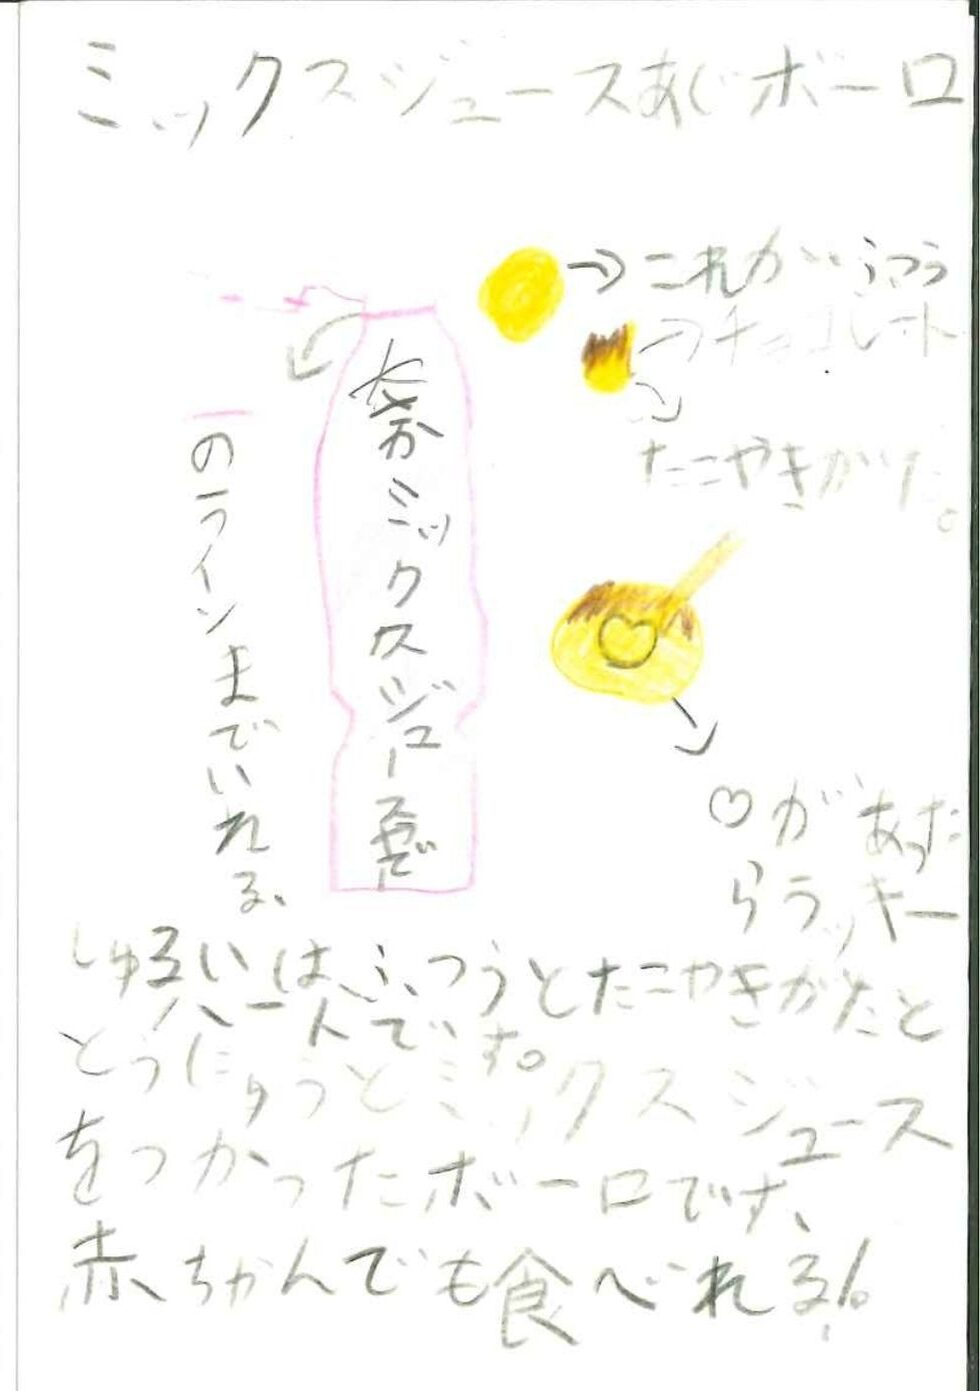 ミックスジュースあじボーロ
→これがふつう
→チョコレート
たこやきがた。
ミックスジュース
のラインまでいれる、
♡があった
らラッキー
しゅるいは、ふつうとたこやきがたと
ハートです。
とうにゅうとミックスジュース
をつかったボーロです、
赤ちゃんでも食べれる!。